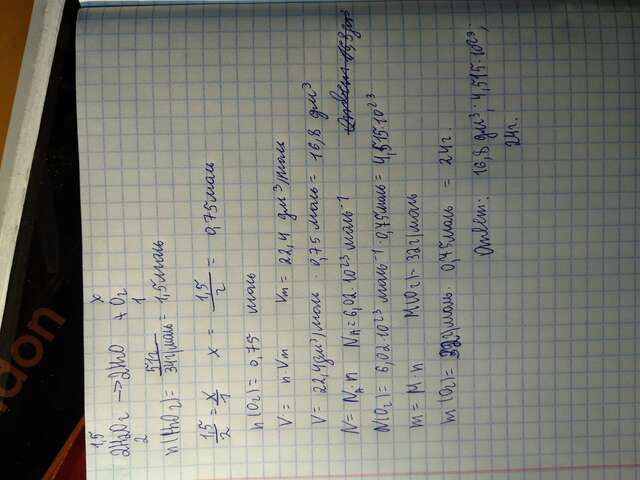 don
1,5 x
2H₂O₂ → 2H₂O + O₂
2 1
n(H₂O₂) = 51г / 34г/моль = 1,5 моль
1,5/2 = x/1 x = 1,5/2 = 0,75 моль
n(O₂) = 0,75 моль
V = n·Vm Vm = 22,4 дм³/моль
V = 22,4 дм³/моль · 0,75 моль = 16,8 дм³
N = NA·n NA = 6,02·10²³ моль⁻¹
N(O₂) = 6,02·10²³ моль⁻¹ · 0,75 моль = 4,515·10²³
m = M·n M(O₂) = 32г/моль
m(O₂) = 32г/моль · 0,75 моль = 24г.
Ответ: 16,8 дм³; 4,515·10²³;
24г.